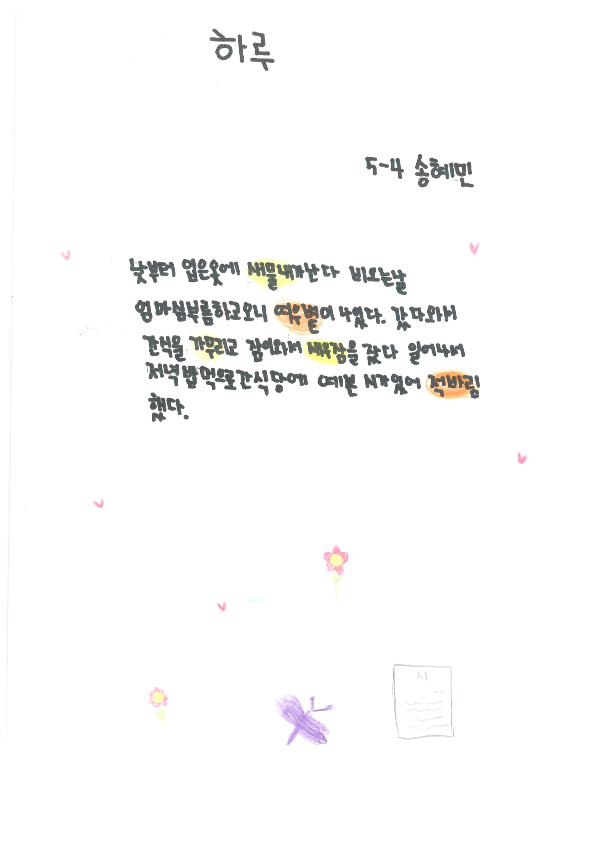 하루
5-4 송혜민
낮부터 입은옷에 새물내가난다 비오는날
엄마심부름하고오니 여우볕이 나있다. 갔다와서
간식을 가무리고 잠이와서 새우잠을 잤다 일어나서
저녁밥먹으로간식당에 예쁜 시가있어 적바림
했다.
시